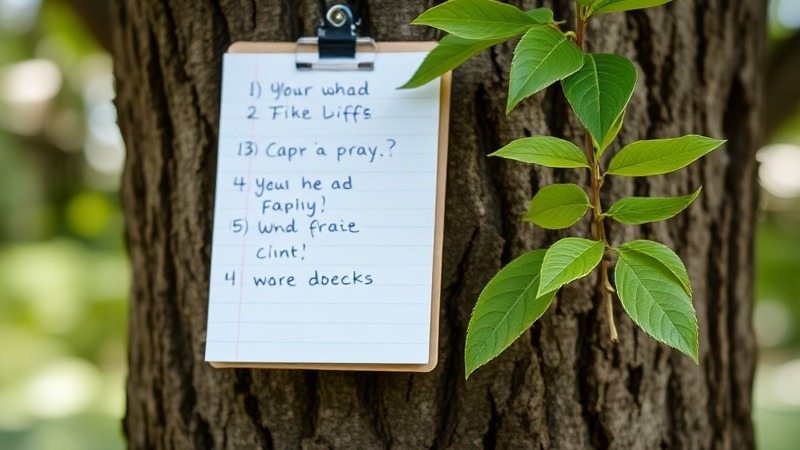 1) Your whad
2 Fike Liffs
13) Capr a pray.?
4 Youl he ad
Faplıy!
5) Wnd fraie
Clınt!
4 wore doecks